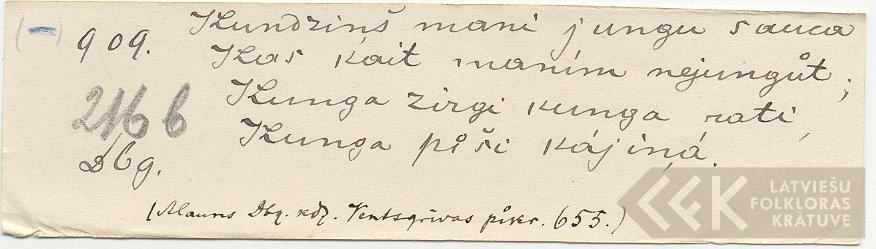 (–)
909. Kundziņš mani jungu sauca
Kas kait manim nejungůt;
Kunga zirgi kunga rati,
Kunga pīši kájiņá.
216 b
Dbg.
(Mauns Dbg. kdz. Ventsgrīvas pīkr. 655.)
LATVIEŠU
FOLKLORAS
KRĀTUVE